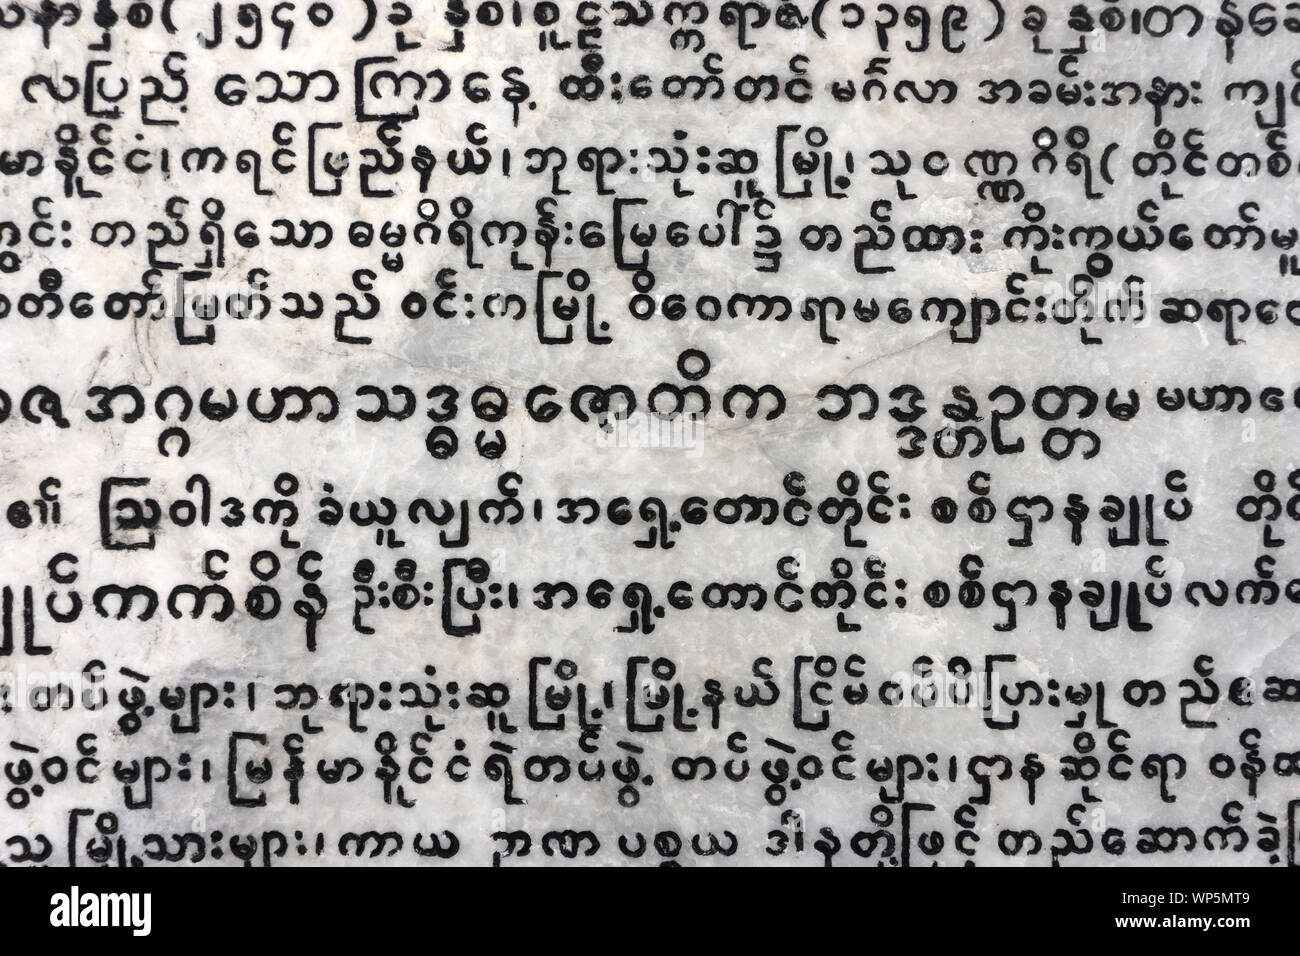 သနာနှစ်(၂၅၄၀)ခု နှစ်၊စူဠသက္ကရာဇ်(၁၃၅၉)ခု နှစ်၊တန်ဆော
လပြည့် သောကြာနေ့ ထီးတော်တင် မင်္ဂလာ အခမ်းအနား ကျင်
မာနိုင်ငံ၊ကရင်ပြည်နယ်၊ဘုရားသုံးဆူမြို့၊သုဝဏ္ဏဂီရိ(တိုင်တစ်
တွင်း တည်ရှိသောဓမ္မဂီရိကုန်းမြေပေါ်၌ တည်ထား ကိုးကွယ်တော်မူ
စေတီတော်မြတ်သည် ဝင်းကမြို့ ဝိဝေကာရာမကျောင်းတိုက် ဆရာတေ
အဂ္ဂမဟာသဒ္ဓမ္မဇောတိက ဘဒ္ဒန္တဥတ္တမ မဟာထေ
၏ ဩဝါဒကို ခံယူလျက်၊အရှေ့တောင်တိုင်း စစ်ဌာနချုပ် တိုင်
ချုပ်ကက်စိန် ဦးစီးပြီး၊အရှေ့တောင်တိုင်း စစ်ဌာနချုပ်လက်အေ
တပ်ဖွဲ့များ၊ဘုရားသုံးဆူမြို့၊မြို့နယ်ငြိမ်ဝပ်ပိပြားမှုတည်ဆေ
ဖွဲ့ဝင်များ၊မြန်မာနိုင်ငံရဲတပ်ဖွဲ့ တပ်ဖွဲ့ဝင်များ၊ဌာနဆိုင်ရာ ဝန်ထ
သူမြို့သားများ၊ကာယ ဉာဏ ပစ္စယ ဒါနတို့ဖြင့် တည်ဆောက်ခဲ့ပြ
alamy
Image ID: WP5MT9
www.alamy.com